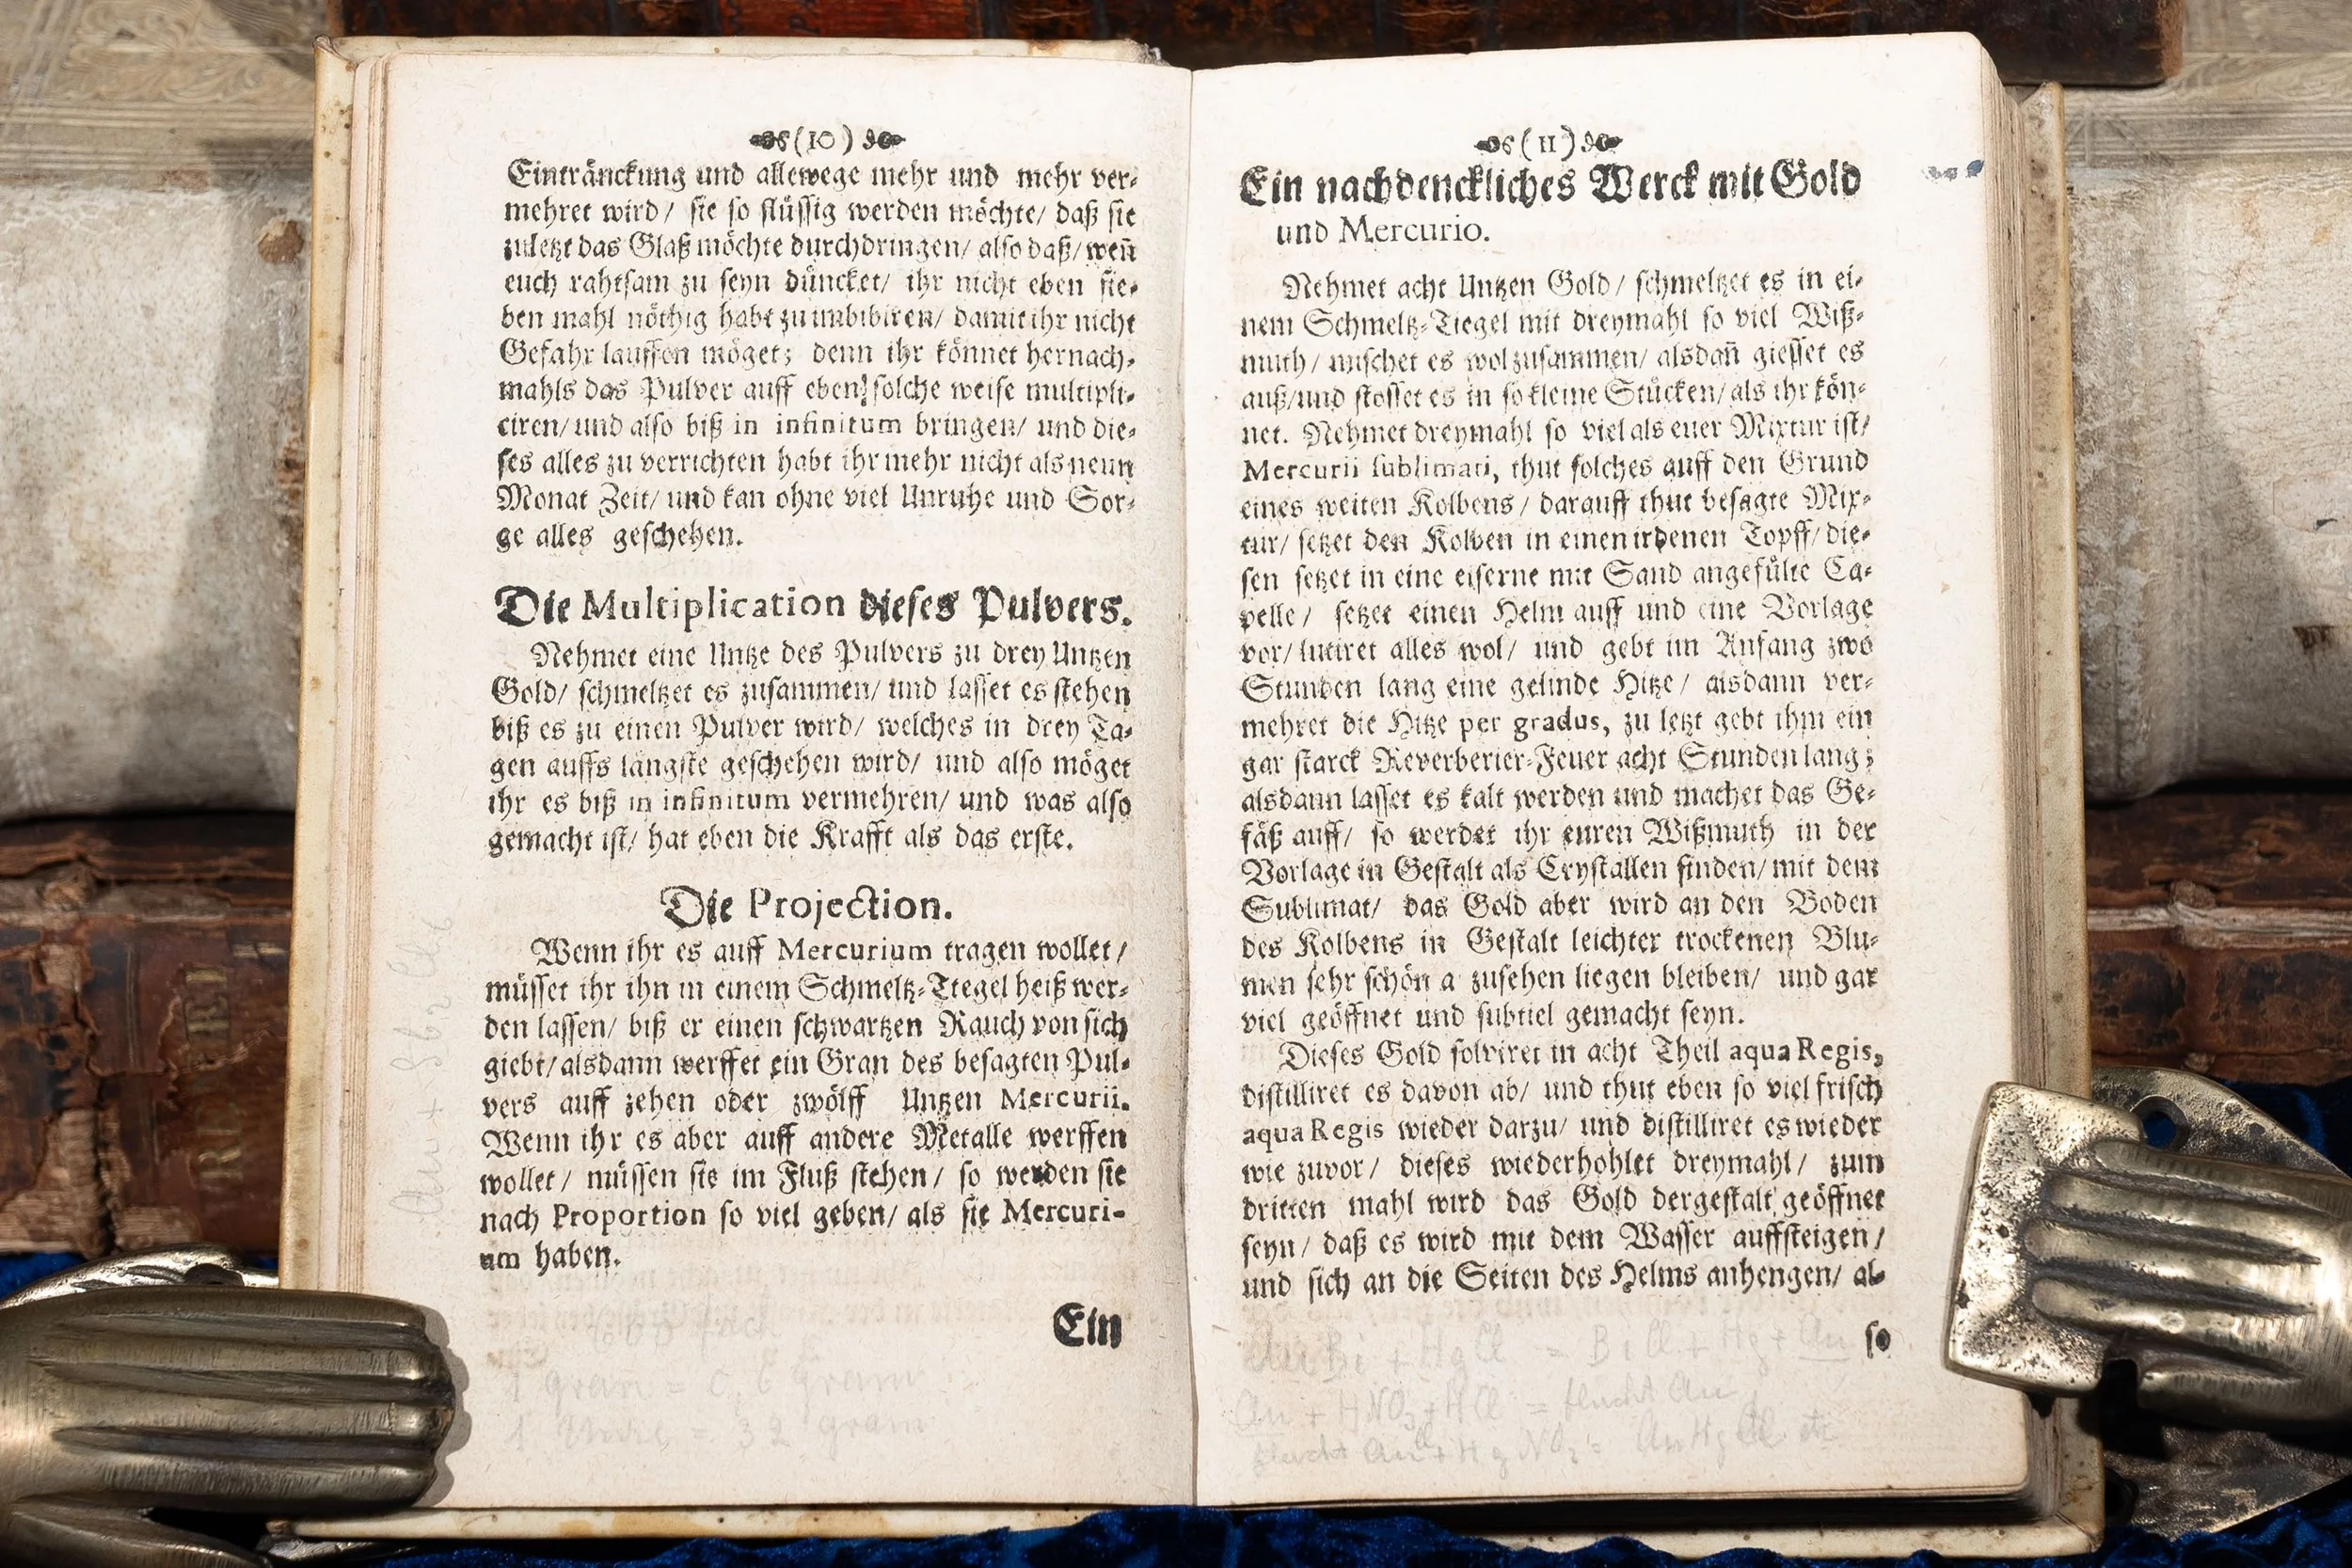 (10)
Eintränckung und allewege mehr und mehr ver-
mehret wird/ sie so flüssig werden möchte/ daß sie
zuletzt das Glaß möchte durchdringen/ also daß/ weñ
euch rahtsam zu seyn düncket/ ihr nicht eben sie-
ben mahl nöthig habt zu imbibiren/ damit ihr nicht
Gefahr lauffen möget; denn ihr könnet hernach-
mahls das Pulver auff eben solche weise multipli-
ciren/ und also biß in infinitum bringen/ und die-
ses alles zu verrichten habt ihr mehr nicht als neun
Monat Zeit/ und kan ohne viel Unruhe und Sor-
ge alles geschehen.
Die Multiplication dieses Pulvers.
Nehmet eine Untze des Pulvers zu drey Untzen
Gold/ schmeltzet es zusammen/ und lasset es stehen
biß es zu einen Pulver wird/ welches in drey Ta-
gen auffs längste geschehen wird/ und also möget
ihr es biß in infinitum vermehren/ und was also
gemacht ist/ hat eben die Krafft als das erste.
Die Projection.
Wenn ihr es auff Mercurium tragen wollet/
müsset ihr ihn in einem Schmeltz-Tiegel heiß wer-
den lassen/ biß er einen schwartzen Rauch von sich
giebt/ alsdann werffet ein Gran des besagten Pul-
vers auff zehen oder zwölff Untzen Mercurii.
Wenn ihr es aber auff andere Metalle werffen
wollet/ müssen sie im Fluß stehen/ so werden sie
nach Proportion so viel geben/ als sie Mercuri-
um haben.
Ein
1 gran = 0,6 gram
1 = 32 gram
(11)
Ein nachdenckliches Werck mit Gold
und Mercurio.
Nehmet acht Untzen Gold/ schmeltzet es in ei-
nem Schmeltz-Tiegel mit dreymahl so viel Wiß-
muth/ mischet es wol zusammen/ alsdañ giesset es
auß/ und stosset es in so kleine Stücken/ als ihr kön-
net. Nehmet dreymahl so viel als euer Mixtur ist/
Mercurii sublimati, thut solches auff den Grund
eines weiten Kolbens/ darauff thut besagte Mix-
tur/ setzet den Kolben in einen irdenen Topff/ die-
sen setzet in eine eiserne mit Sand angefülte Ca-
pelle/ setzet einen Helm auff und eine Vorlage
vor/ lutiret alles wol/ und gebt im Anfang zwo
Stunden lang eine gelinde Hitze/ alsdann ver-
mehret die Hitze per gradus, zu letzt gebt ihm ein
gar starck Reverberier-Feuer acht Stunden lang;
alsdann lasset es kalt werden und machet das Ge-
fäß auff/ so werdet ihr euren Wißmuth in der
Vorlage in Gestalt als Crystallen finden/ mit dem
Sublimat/ das Gold aber wird an den Boden
des Kolbens in Gestalt leichter trockenen Blu-
men sehr schön a zusehen liegen bleiben/ und gar
viel geöffnet und subtiel gemacht seyn.
Dieses Gold solviret in acht Theil aqua Regis,
distilliret es davon ab/ und thut eben so viel frisch
aqua Regis wieder darzu/ und distilliret es wieder
wie zuvor/ dieses wiederhohlet dreymahl/ zum
dritten mahl wird das Gold dergestalt geöffnet
seyn/ daß es wird mit dem Wasser auffsteigen/
und sich an die Seiten des Helms anhengen/ al-
so
Au Bi + HgCl = BiCl + Hg + Au
Au + HNO3 + HCl = flucht Au